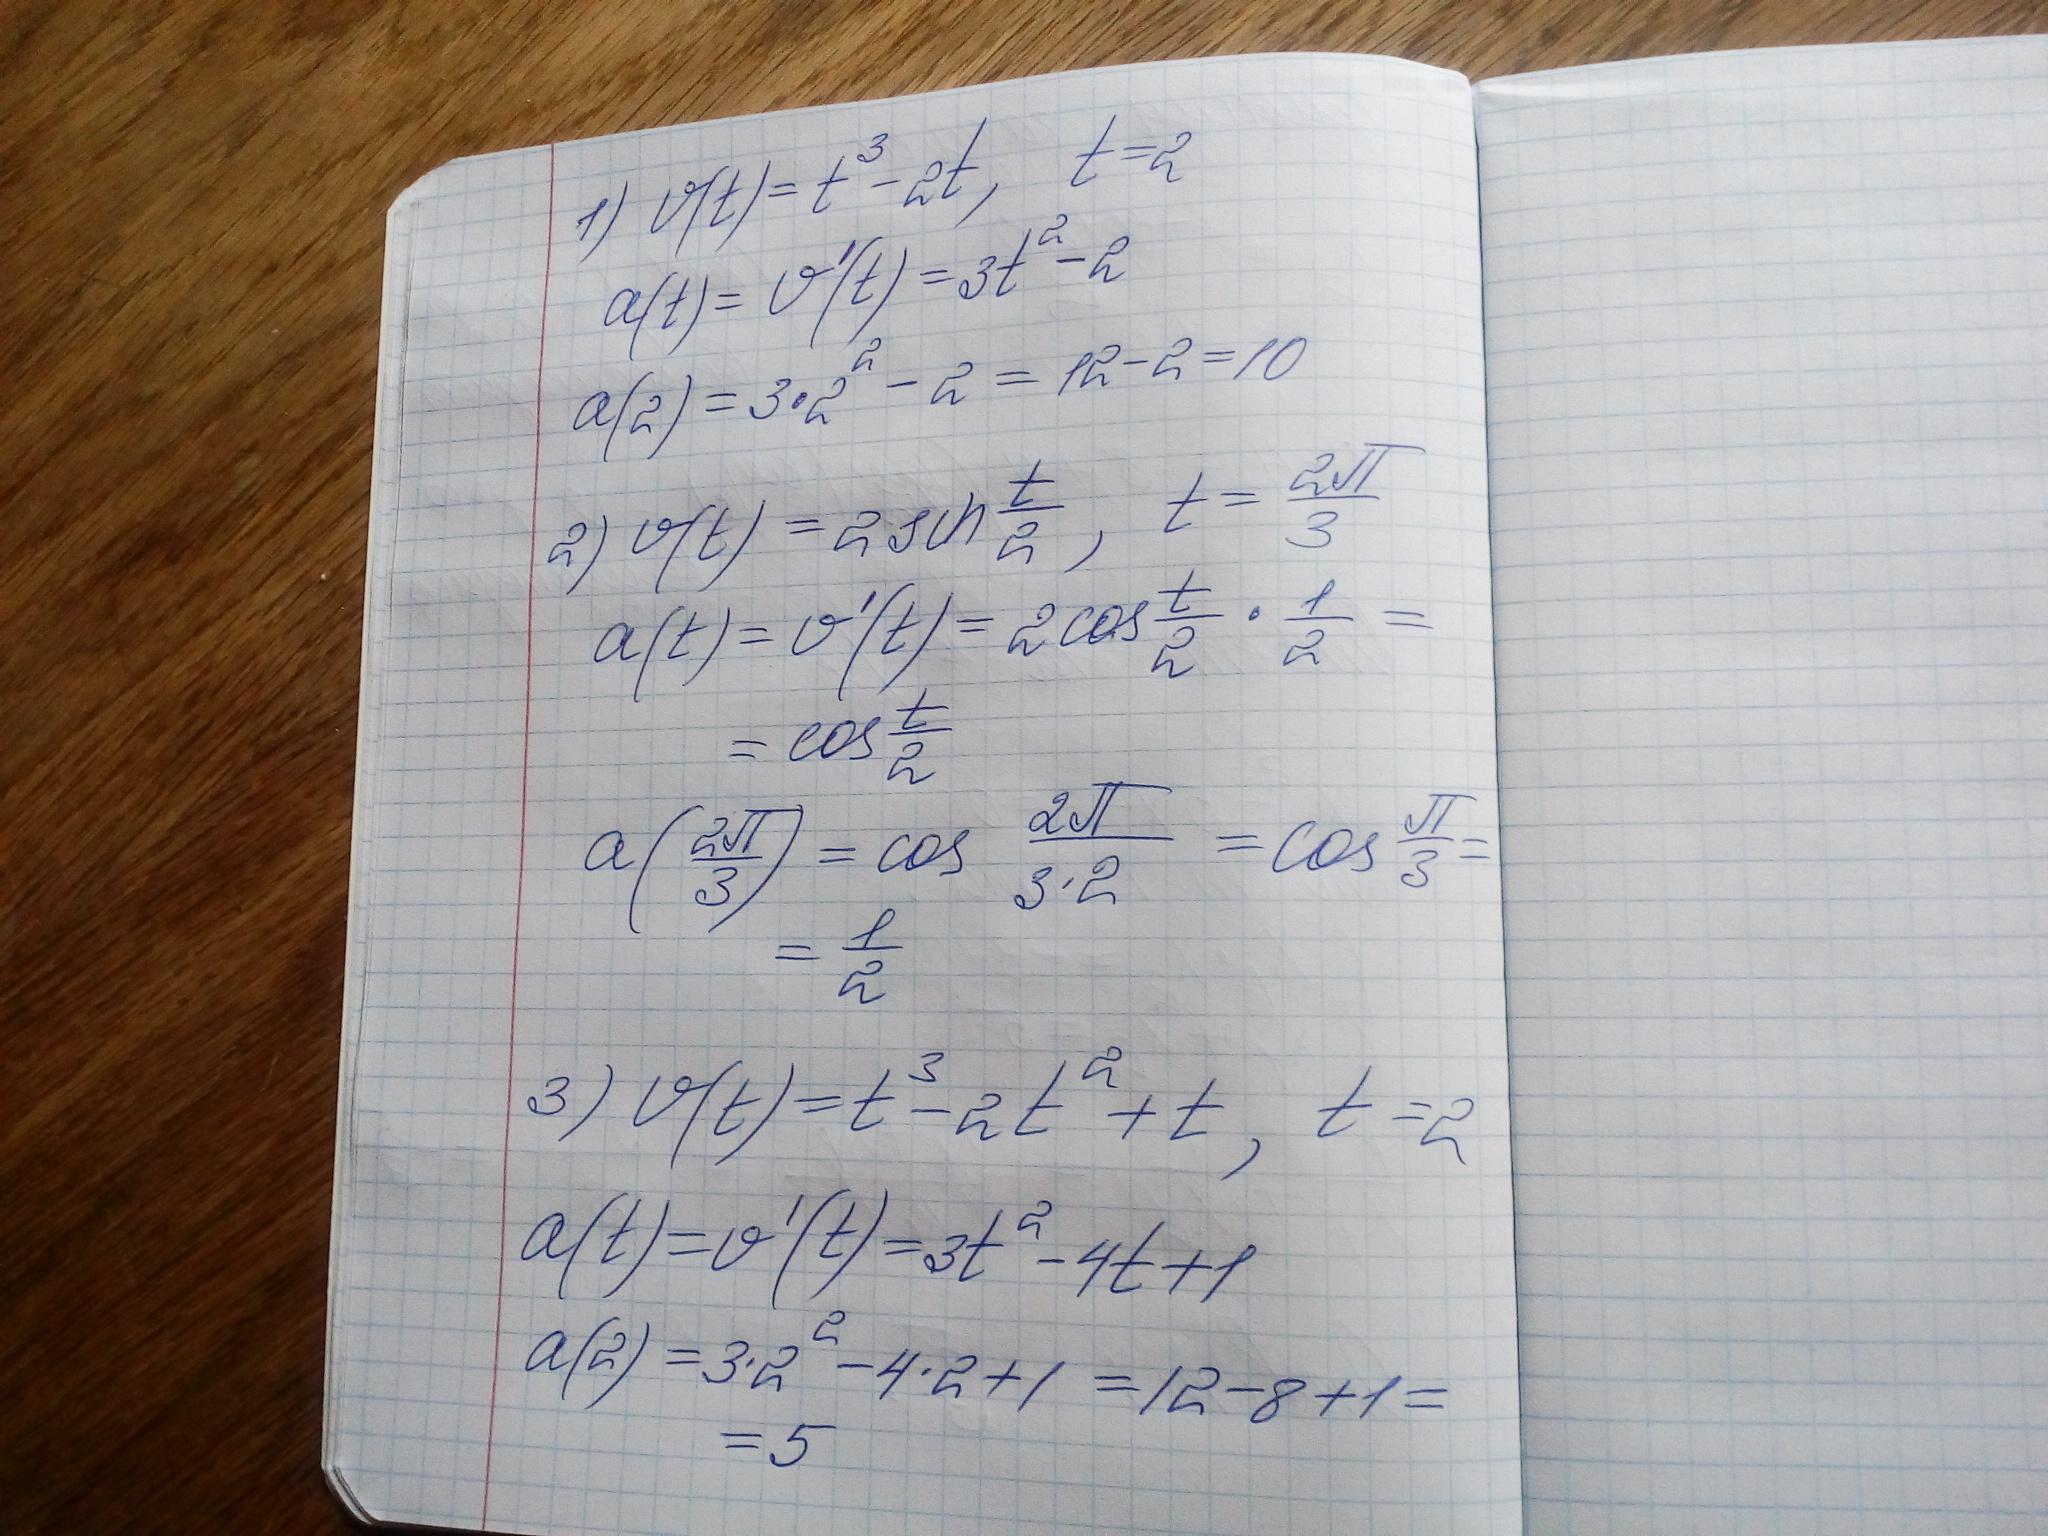 1) v(t) = t³ - 2t, t = 2
a(t) = v'(t) = 3t² - 2
a(2) = 3·2² - 2 = 12 - 2 = 10
2) v(t) = 2 sin t/2, t = 2π/3
a(t) = v'(t) = 2 cos t/2 · 1/2 =
= cos t/2
a(2π/3) = cos 2π/(3·2) = cos π/3 =
= 1/2
3) v(t) = t³ - 2t² + t, t = 2
a(t) = v'(t) = 3t² - 4t + 1
a(2) = 3·2² - 4·2 + 1 = 12 - 8 + 1 =
= 5